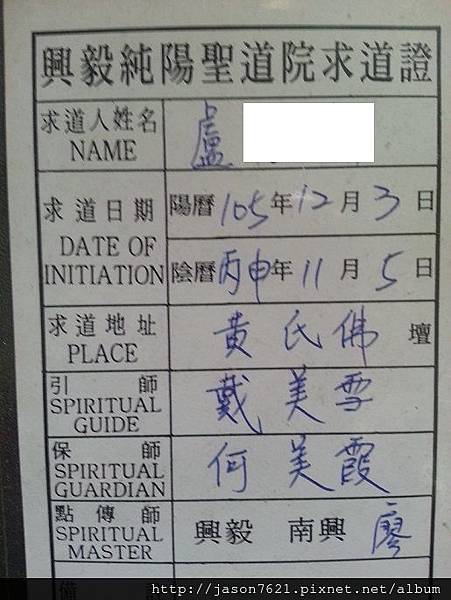 興毅純陽聖道院求道證
求道人姓名 盧
NAME
求道日期 陽曆105年12月3日
DATE OF
INITIATION 陰曆丙申年11月5日
求道地址 黃氏佛壇
PLACE
引師 戴美雪
SPIRITUAL
GUIDE
保師 何美霞
SPIRITUAL
GUARDIAN
點傳師 興毅 南興 廖
SPIRITUAL
MASTER
備
http://jason7621.pixnet.net/album